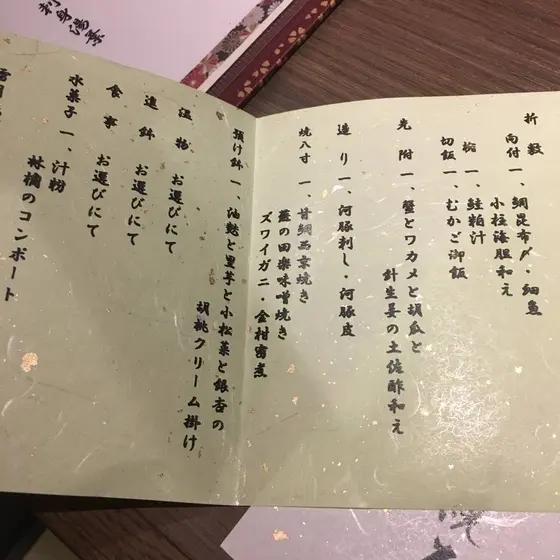 折敷
向付 一、鯛昆布〆・細魚
小柱海胆和え
椀 一、鮭粕汁
切飯 一、むかご御飯
先附 一、蟹とワカメと胡瓜と
針生姜の土佐酢和え
造り 一、河豚刺し・河豚皮
焼八寸 一、甘鯛西京焼き
蕪の田楽味噌焼き
ズワイガニ・金柑蜜煮
預け鉢 一、油麩と里芋と小松菜と銀杏の
胡桃クリーム掛け
温物 お選びにて
進鉢 お選びにて
食事 お選びにて
水菓子 一、汁粉
林檎のコンポート